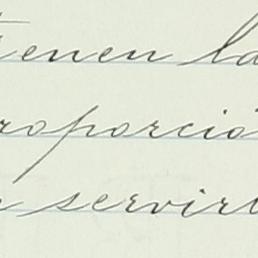 tienen la
roporció
servir